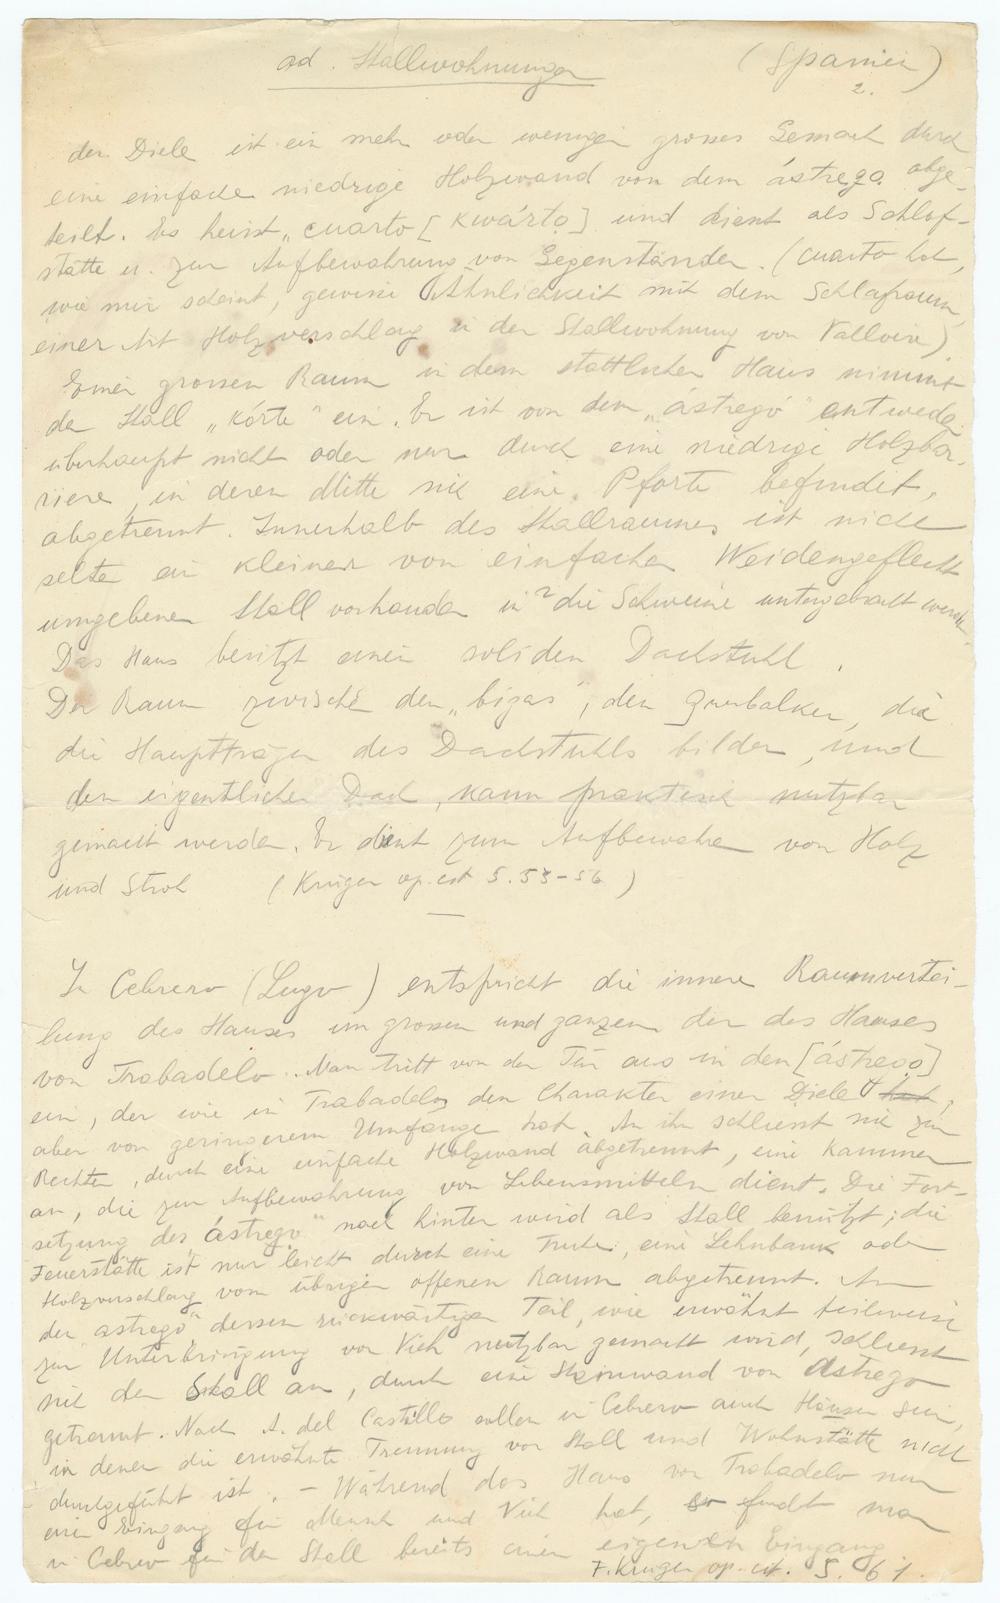 ad. Stallwohnungen (Spanien)
2.
der Diele ist ein mehr oder weniger grosses Gemach durch
eine einfache niedrige Holzwand von dem ástrego abge-
teilt. Es heisst „cuarto [kwárto] und dient als Schlaf-
stätte u. zur Aufbewahrung von Gegenständen. (cuarto hat,
wie mir scheint, gewisse Ähnlichkeit mit dem Schlafraum,
einer Art Holzverschlag in der Stallwohnung von Valloire)
Einen grossen Raum in dem stattlichen Haus nimmt
der Stall „kórte" ein. Er ist von dem „ástrego" entweder
überhaupt nicht oder nur durch eine niedrige Holzbar-
riere, in deren Mitte sich eine Pforte befindet,
abgetrennt. Innerhalb des Stallraumes ist nicht
selten ein kleiner von einfachem Weidengeflecht
umgebener Stall vorhanden in die Schweine untergebracht werden.
Das Haus besitzt einen soliden Dachstuhl.
Der Raum zwischen den „bigas", den Querbalken, die
die Hauptträger des Dachstuhls bilden, und
dem eigentlichen Dach, kann praktisch nutzbar
gemacht werden. Er dient zum Aufbewahren von Holz
und Stroh (Krüger op. cit S. 53-56)
In Cebrero (Lugo) entspricht die innere Raumvertei-
lung des Hauses im grossen und ganzen der des Hauses
von Trabadelo. Man tritt von der Tür aus in den [ástrego]
ein, der wie in Trabadelo den Charakter einer Diele hat,
aber von geringerem Umfange hat. An ihn schliesst sich zur
Rechten, durch eine einfache Holzwand abgetrennt, eine Kammer
an, die zur Aufbewahrung von Lebensmitteln dient. Die Fort-
setzung des „ástrego" nach hinten wird als Stall benützt; die
Feuerstätte ist nur leicht durch eine Truhe, eine Lehnbank oder
Holzverschlag vom übrigen offenen Raum abgetrennt. An
den astrego", dessen rückwärtiger Teil, wie erwähnt teilweise
zur Unterbringung von Vieh nutzbar gemacht wird, schliesst
sich der Stall an, durch eine Steinwand von astrego
getrennt. Nach A. del Castillo sollen in Cebrero auch Häuser sein,
in denen die erwähnte Trennung von Stall und Wohnstätte nicht
durchgeführt ist. – Während das Haus von Trabadelo nur
einen Eingang für Mensch und Vieh hat, so findet man
in Cebrero für den Stall bereits einen eigenen Eingang
F. Krüger op. cit. S. 61.